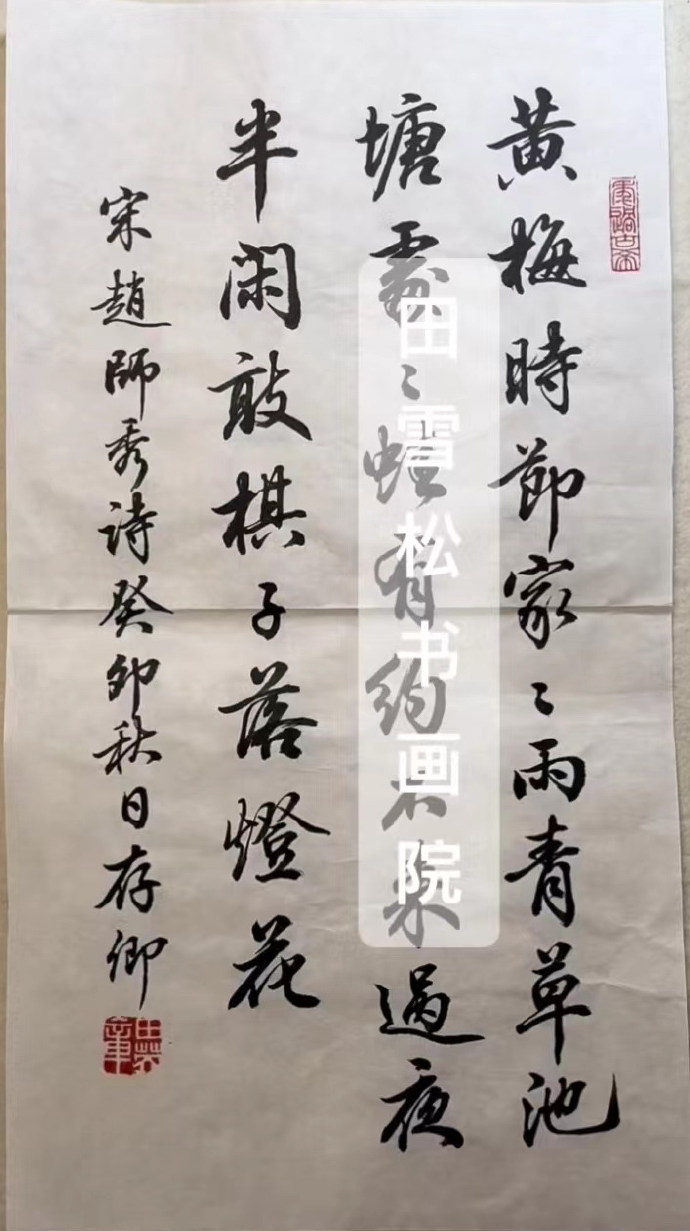 黄梅時節家〻雨青草池
塘處〻蛙有約不来過夜
半閑敲棋子落燈花
宋趙師秀詩癸卯秋日存卿
田雪松书画院